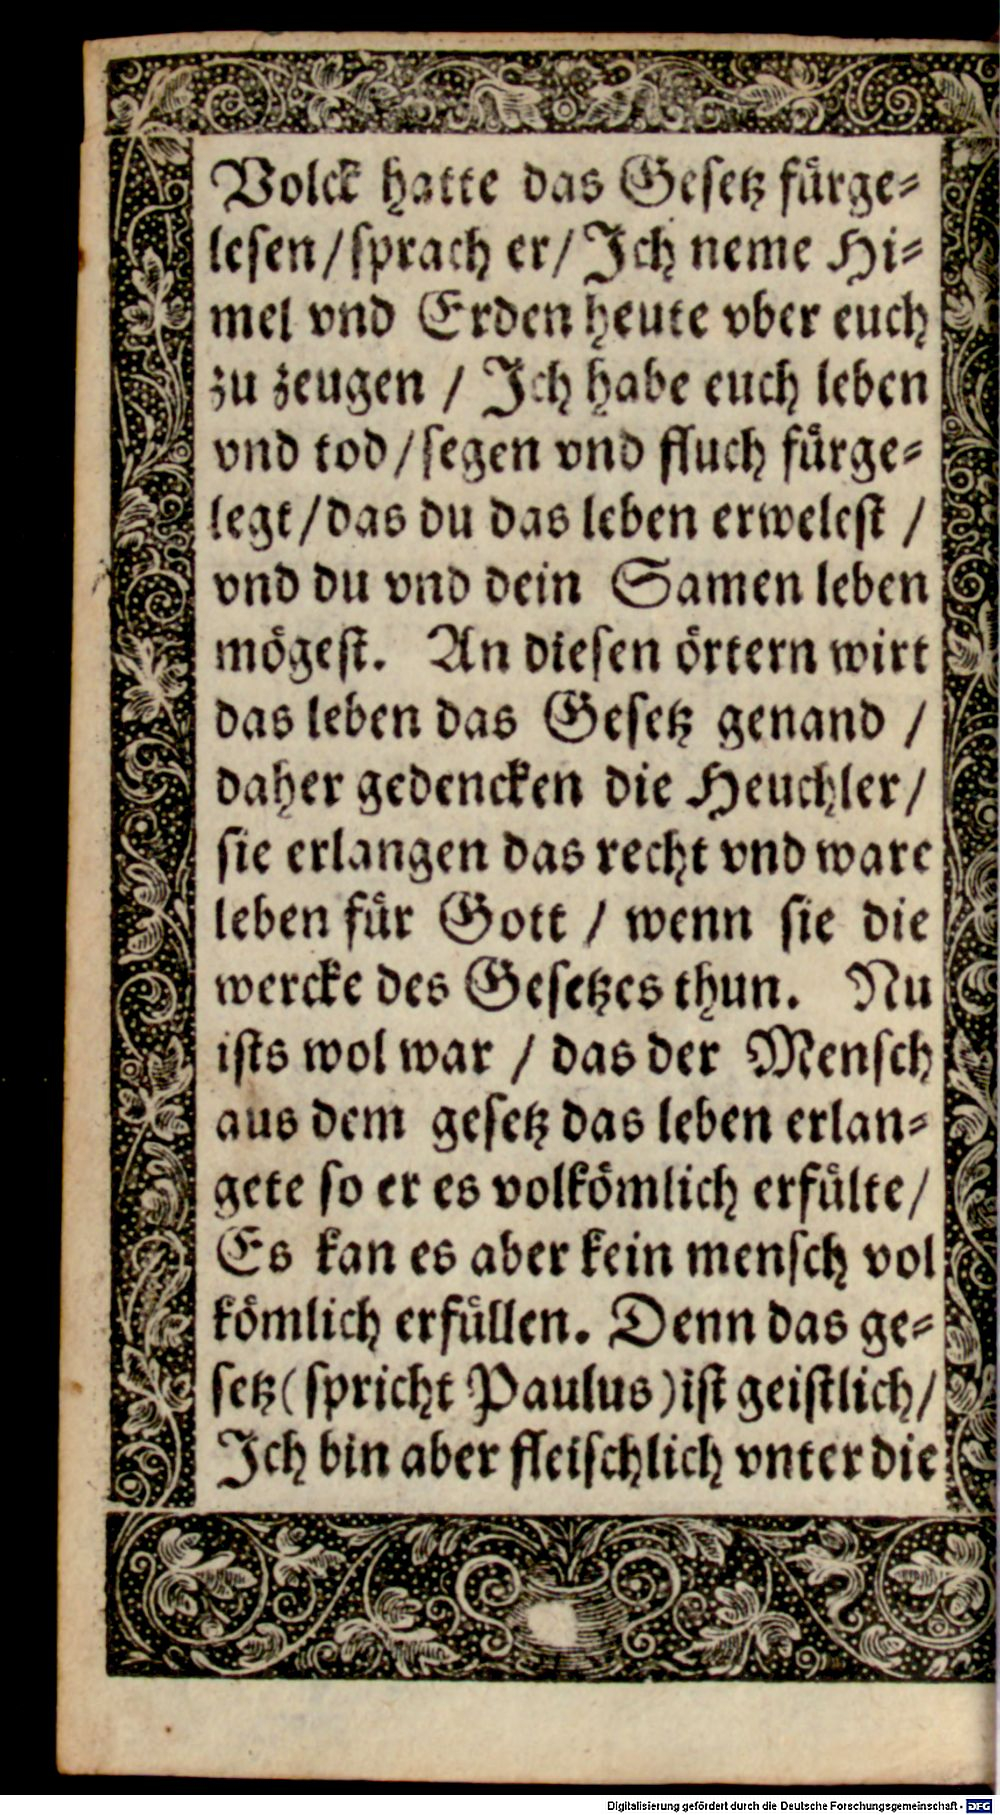 Volck hatte das Gesetz fürge-
lesen / sprach er / Ich neme Hi-
mel vnd Erden heute vber euch
zu zeugen / Ich habe euch leben
vnd tod / segen vnd fluch fürge-
legt / das du das leben erwelest /
vnd du vnd dein Samen leben
mögest. An diesen örtern wirt
das leben das Gesetz genand /
daher gedencken die Heuchler /
sie erlangen das recht vnd ware
leben für Gott / wenn sie die
wercke des Gesetzes thun. Nu
ists wol war / das der Mensch
aus dem gesetz das leben erlan-
gete so er es volkömlich erfülte /
Es kan es aber kein mensch vol
kömlich erfüllen. Denn das ge-
setz (spricht Paulus) ist geistlich /
Ich bin aber fleischlich vnter die
Digitalisierung gefördert durch die Deutsche Forschungsgemeinschaft - DFG